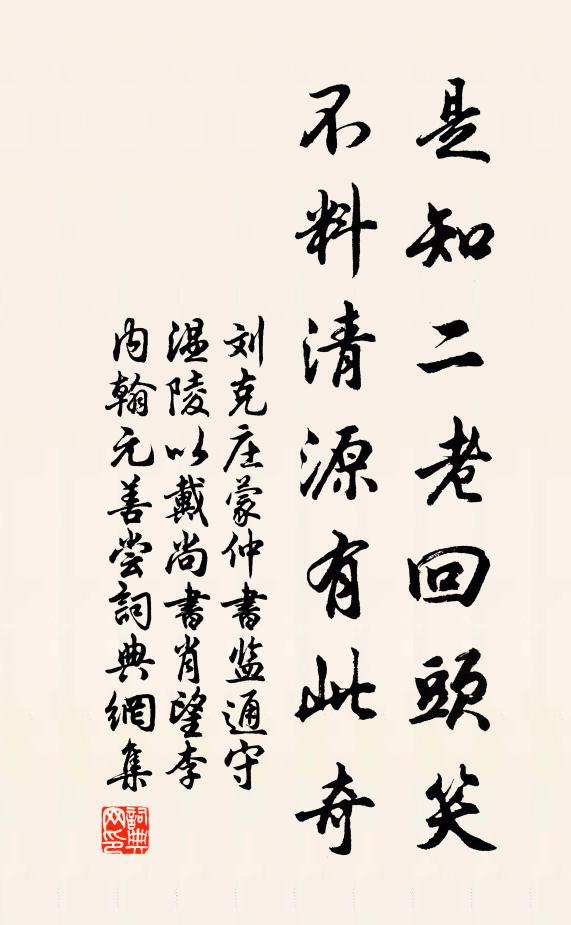 是知二老回頭笑
不料清源有此奇
刘克庄蒙仲書监通守
温陵以戴尚書肖望李
内翰元善尝詞典網集
詞典網印